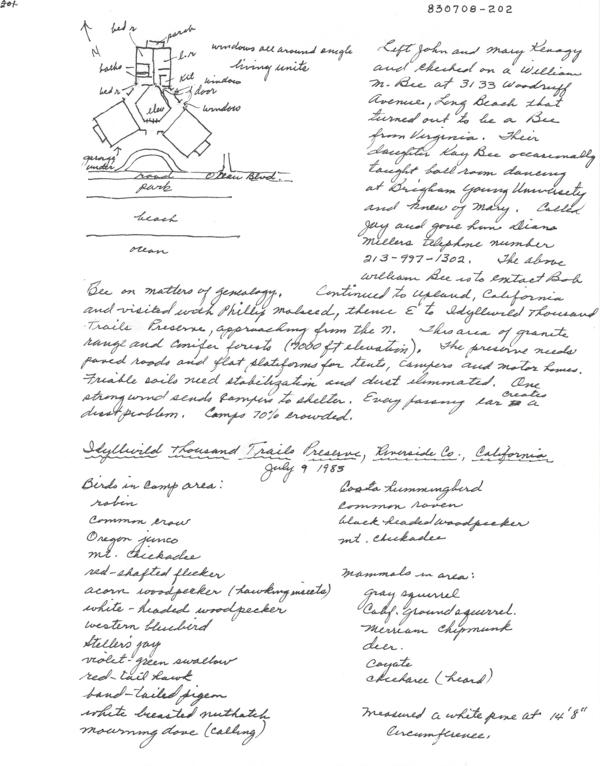 201
830708-202
N
bed r
porch
l.r
windows all around single
living units
baths
kit
window
door
bed r
elev
window
garage
under
road
Ocean Blvd.
park
beach
ocean
Left John and Mary Kenagy
and checked on a William
M. Bee at 3133 Woodruff
Avenue, Long Beach that
turned out to be a Bee
from Virginia. Their
daughter Kay Bee occasionally
taught ball room dancing
at Brigham Young University
and knew of Mary. Called
Jay and gave him Diana
Millers telephone number
213-997-1302. The above
William Bee is to contact Bob
Bee on matters of genealogy. Continued to Upland, California
and visited with Phillip Malaced, thence E to Idyllwild Thousand
Trails Preserve, approaching from the N. This area of granite
range and conifer forests (4000 ft elevation). The preserve needs
paved roads and flat platforms for tents, campers and motor homes.
Friable soils need stabilization and dust eliminated. One
strong wind sends campers to shelter. Every passing car creates a
dust problem. Camps 70% crowded.
Idyllwild Thousand Trails Preserve, Riverside Co., California
July 9 1983
Birds in camp area:
robin
common crow
Oregon junco
mt. chickadee
red-shafted flicker
acorn woodpecker (hawking insects)
white-headed woodpecker
western bluebird
Steller's jay
violet-green swallow
red-tail hawk
band-tailed pigeon
white breasted nuthatch
mourning dove (calling)
Costa hummingbird
common raven
black headed woodpecker
mt. chickadee
Mammals in area:
gray squirrel
Calif. ground squirrel.
Merriam chipmunk
deer.
Coyote
chickaree (heard)
Measured a white pine at 14'8"
circumference.